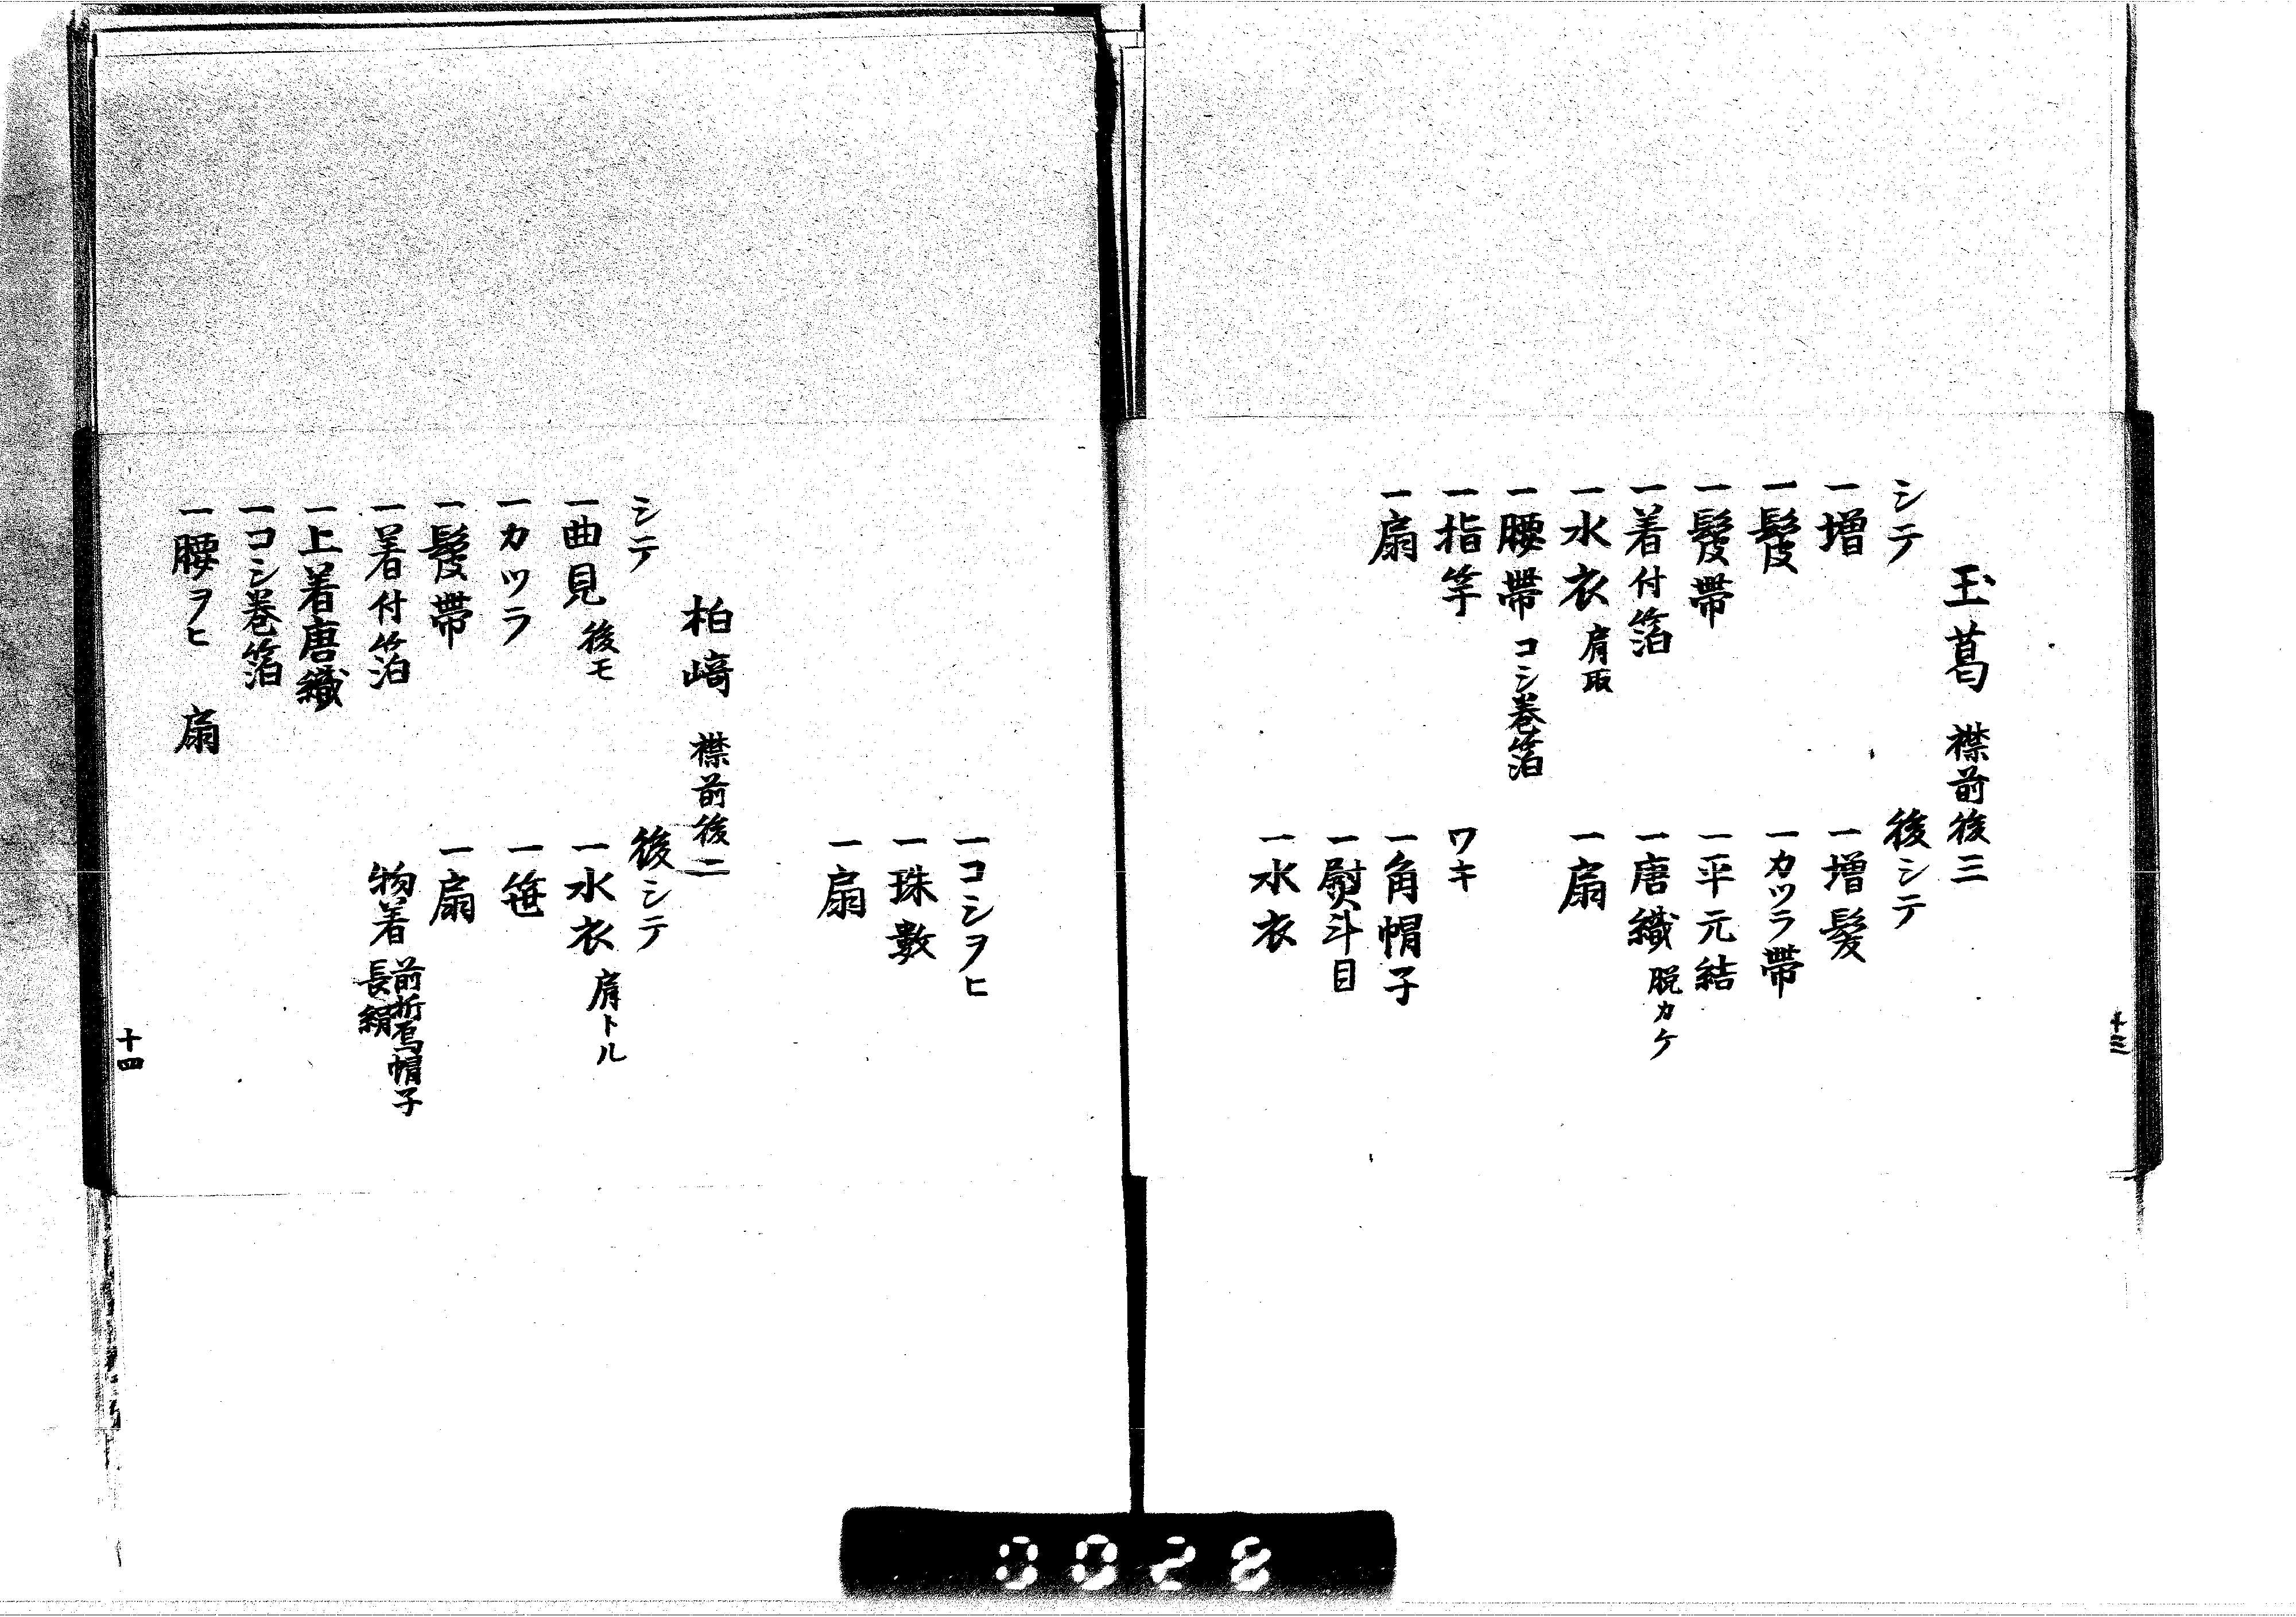 玉葛 襟前後三
シテ
一増
一髪
一髪帯
一着付箔
一水衣 肩取
一腰帯 コシ巻箔
一指竿
一扇
後シテ
一増髪
一カツラ帯
一平元結
一唐織 脱カケ
一扇
ワキ
一角帽子
一熨斗目
一水衣
十三
一コシヲヒ
一珠數
一扇
柏﨑 襟前後二
シテ
一曲見 後モ
一カツラ
一髪帯
一着付箔
一上着唐織
一コシ巻箔
一腰ヲヒ 扇
後シテ
一水衣 肩トル
一笹
一扇
物着 前折烏帽子
長絹
十四
0028